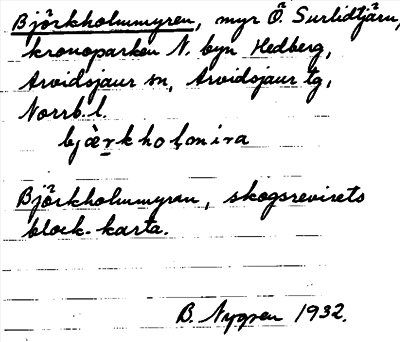 Björkholmmyren, myr Ö. Surlidtjärn,
kronoparken N. byn Hedberg,
Arvidsjaur sn, Arvidsjaur tg,
Norrb. l.
bjæ̀rkholmira
Björkholmmyran, skogsrevirets
block-karta.
B. Nygren 1932.